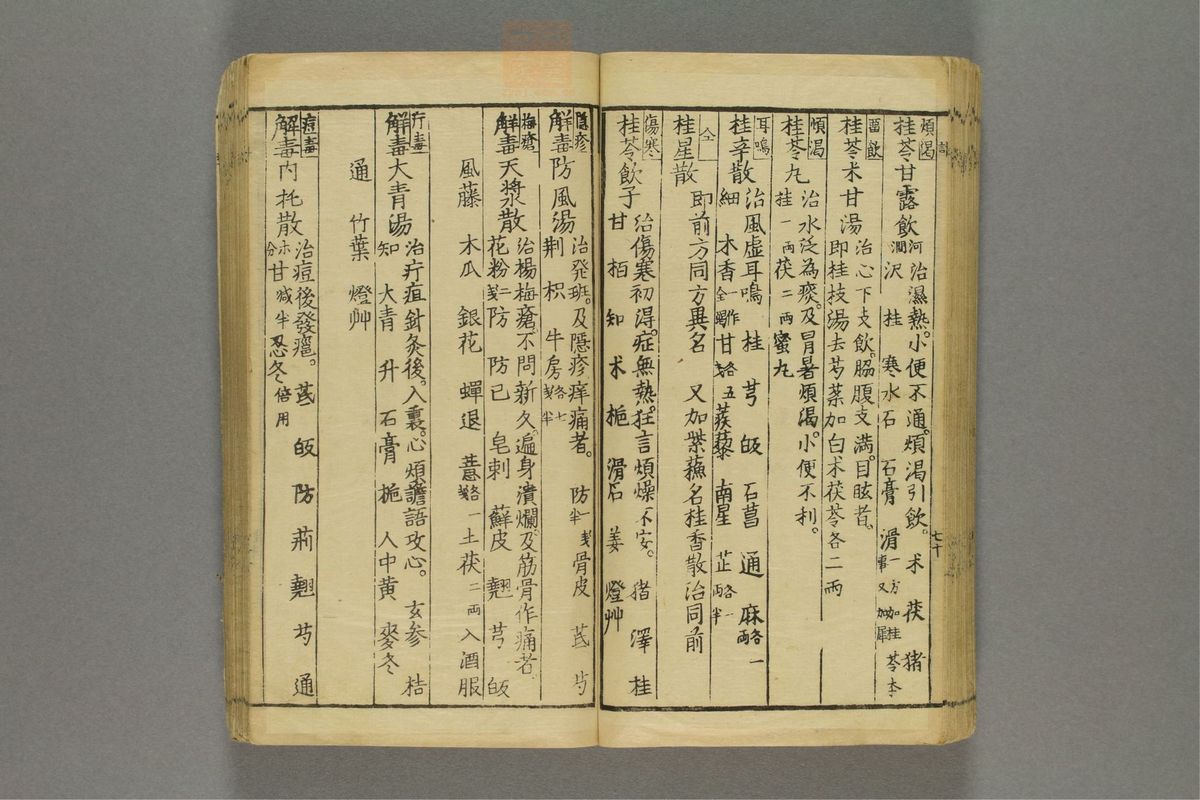 煩渇
桂苓甘露飲 河澗 治濕熱。小便不通。煩渇引飲。 朮 茯 猪
沢 桂 寒水石 石膏 滑 一方加桂苓李
畄飲
桂苓朮甘湯 治心下支飲。脇腹支満。目眩者。
即桂枝湯去芍薬加白朮茯苓各二両
煩渇
桂苓丸 治水泛為痰。及冒暑煩渇。小便不利。
桂一両 茯二両 蜜丸
耳鳴
桂辛散 治風虚耳鳴 桂 芎 皈 石菖 通 麻各一両
細 木香一作全蝎 甘各五 蒺藜 南星 芷各一両半
仝
桂星散 即前方同方異名 又加紫蘓名桂香散治同前
傷寒
桂苓飲子 治傷寒初淂。症無熱。狂言煩燥不安。 猪 澤 桂
甘 栢 知 朮 梔 滑石 姜 燈艸
七十
隠疹
解毒防風湯 治発斑。及隠疹痒痛者。 防一戋半 骨皮 芪 芍
荆 枳 牛房各七戋半
梅瘡
解毒天漿散 治楊梅瘡。不問新久。遍身潰爛。及筋骨作痛者
花粉二戋 防 防已 皂刺 蘚皮 翹 芎 皈
風藤 木瓜 銀花 蟬退 薏各一戋 土茯二両 入酒服
疔毒
解毒大青湯 治疔疽針灸後。入裏。心煩譫語攻心。 玄参 桔
知 大青 升 石膏 梔 人中黄 麥冬
通 竹葉 燈艸
痘毒
解毒内托散 治痘後發癰。 芪 皈 防 荊 翹 芍 通
木分 甘減半 忍冬倍用